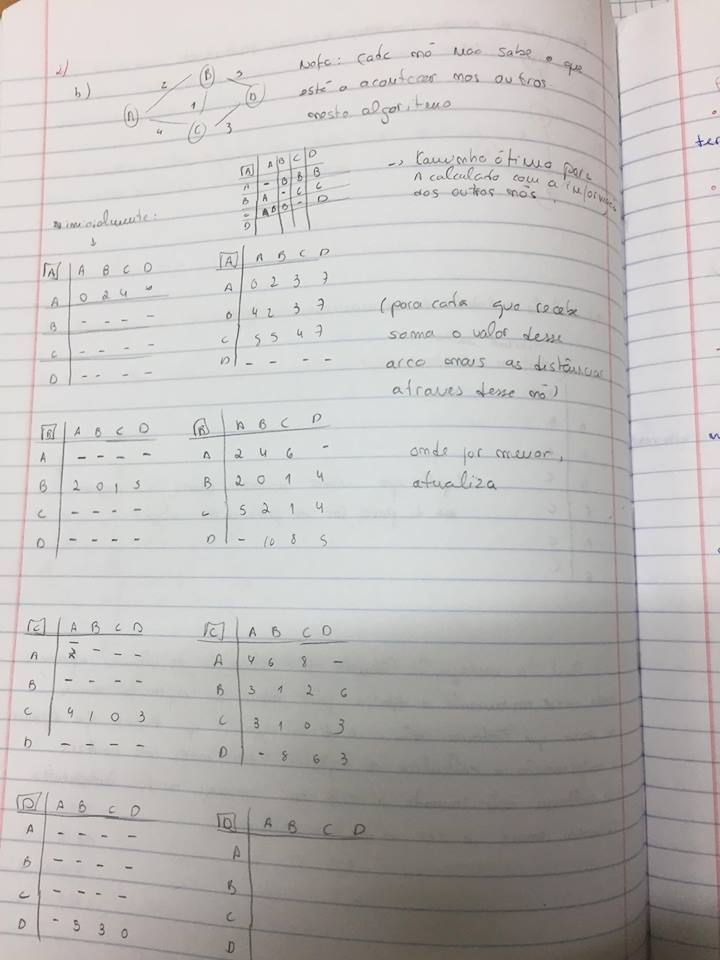 2)
b)
Nota: Cada nó não sabe o que
está a acontecer nos outros
neste algoritmo
A B C D
2 5 1 4 3
[A] A B C D
A - B B B
B A - C C
C A B B - D
D
→ Caminho ótimo para
A calculado com a informação
dos outros nós.
inicialmente:
↓
[A] A B C D
A 0 2 4
B - - - -
C - - - -
D - - - -
[A] A B C D
A 0 2 3 7
B 4 2 3 7
C 5 5 4 7
D - - - -
(para cada que recebe
soma o valor desse
arco mais as distâncias
atraves desse nó)
onde for menor,
atualiza
[B] A B C D
A - - - -
B 2 0 1 5
C - - - -
D - - - -
[B] A B C D
A 2 4 6 -
B 2 0 1 4
C 5 2 1 4
D - 10 8 5
[C] A B C D
A - - - -
B - - - -
C 4 1 0 3
D - - - -
[C] A B C D
A 4 6 8 -
B 3 1 2 6
C 3 1 0 3
D - 8 6 3
[D] A B C D
A - - - -
B - - - -
C - - - -
D - 5 3 0
[D] A B C D
A
B
C
D
ter